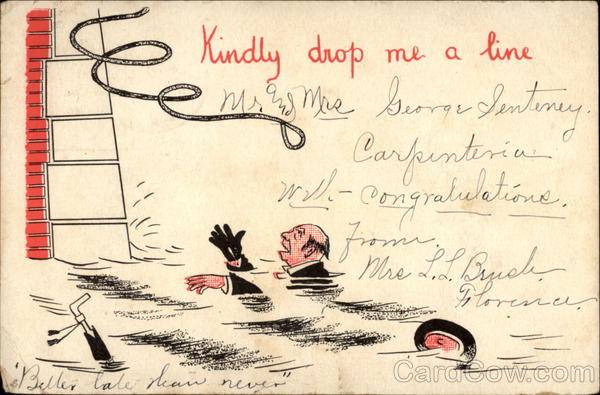 Kindly drop me a line
Mr. and Mrs George Senteney.
Carpinteria
Well - congratulations.
From
Mrs L. L. Brush.
Florence.
"Better late than never"
CardCow.com